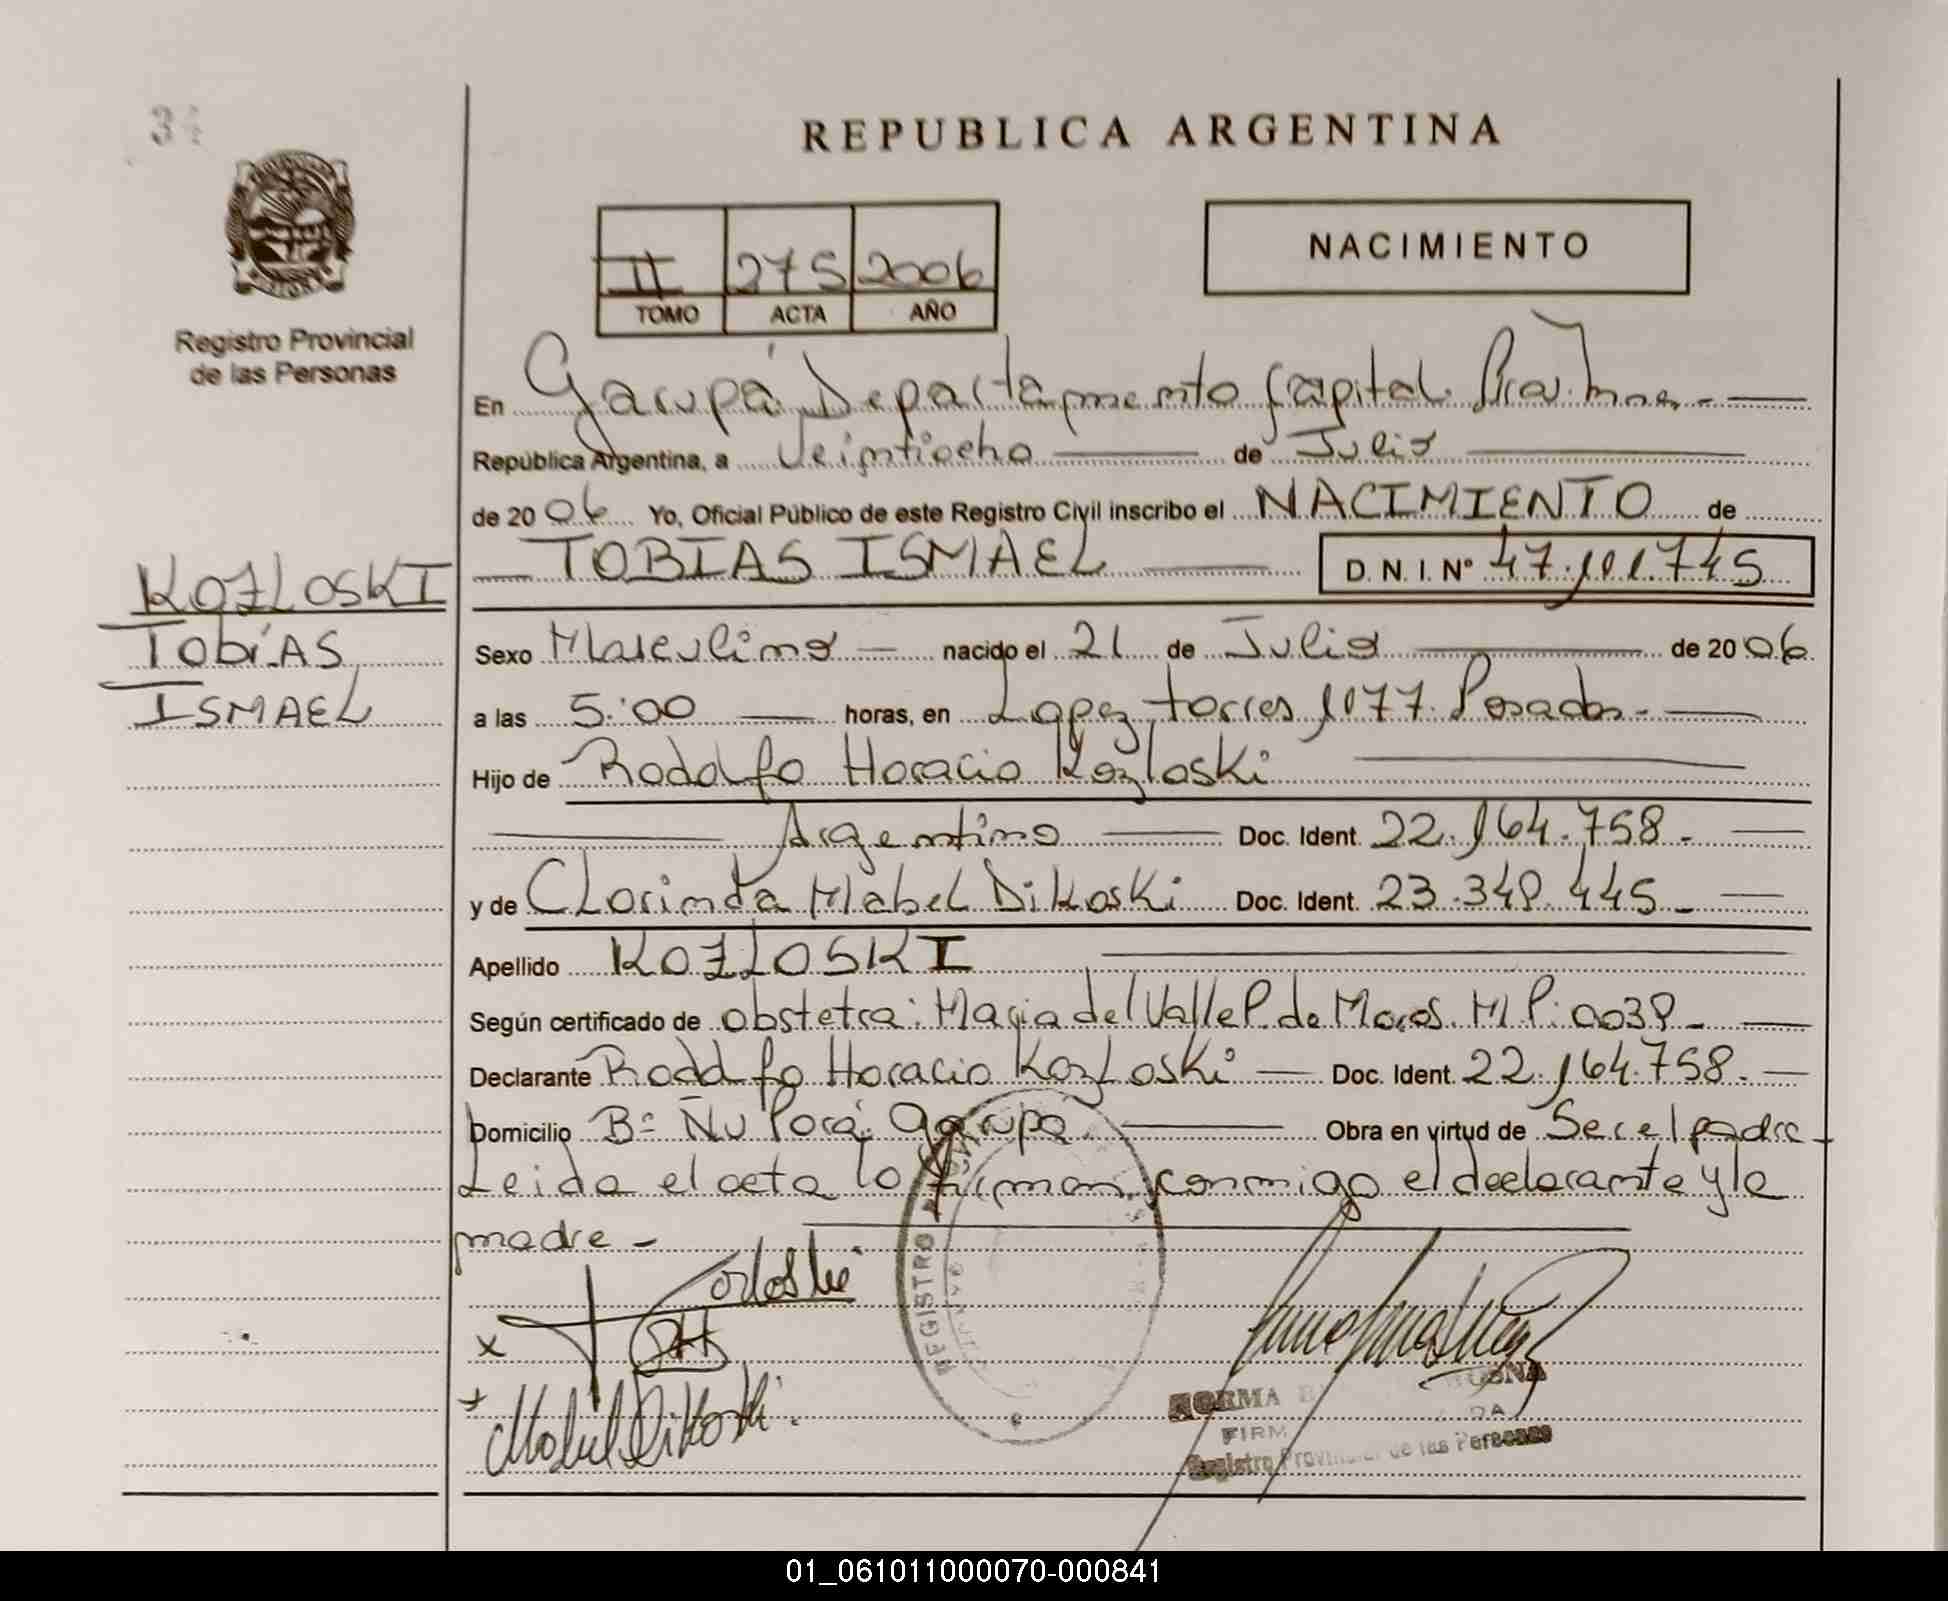 34
REPUBLICA ARGENTINA
II 275 2006
TOMO ACTA AÑO
NACIMIENTO
Registro Provincial
de las Personas
En Garupá Departamento Capital Prov. Mnes.-
República Argentina, a Veintiocho de Julio
de 2006 Yo, Oficial Público de este Registro Civil inscribo el NACIMIENTO de
TOBIAS ISMAEL D.N.I. Nº 47.101.745
KOZLOSKI
TobíAS
ISMAEL
Sexo Masculino nacido el 21 de Julio de 2006
a las 5:00 horas, en Lopez torres 1077. Posadas-
Hijo de Rodolfo Horacio Kozloski
Argentino Doc. Ident. 22.164.758.-
y de Clorinda Mabel Dikoski Doc. Ident. 23.349.445_
Apellido KOZLOSKI
Según certificado de obstetra: Maria del Valle P. de Moros. M P: 0039_
Declarante Rodolfo Horacio Kozloski Doc. Ident. 22.164.758.
Domicilio Bº Ñu Porá. Garupá. Obra en virtud de Ser el padre-
Leida el acta lo firman conmigo el declarante y la
madre-
x Kozloski
RHK
+ Mabel Dikoski.
REGISTRO
NORMA
FIRM
Registro Provincial de las Personas
01_061011000070-000841